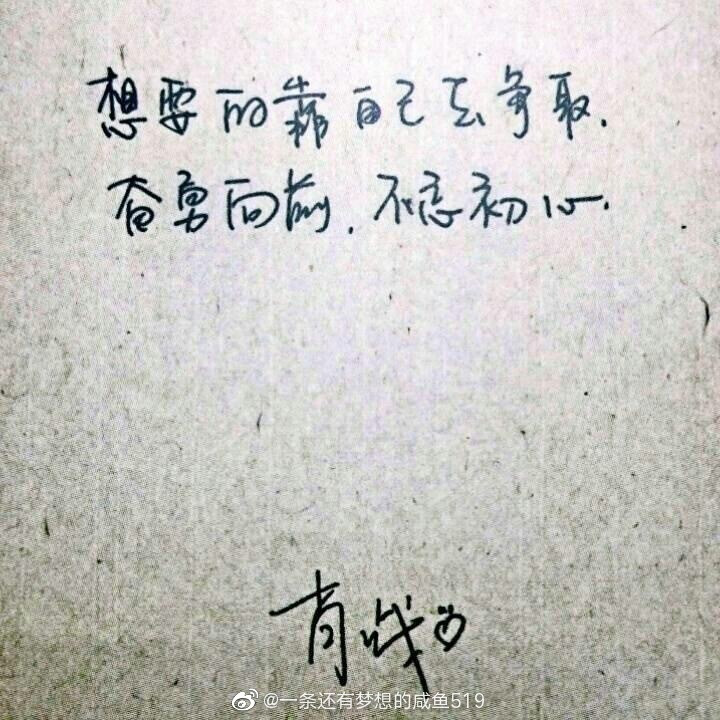 想要的靠自己去争取.
奋勇向前.不忘初心.
肖战
@一条还有梦想的咸鱼519